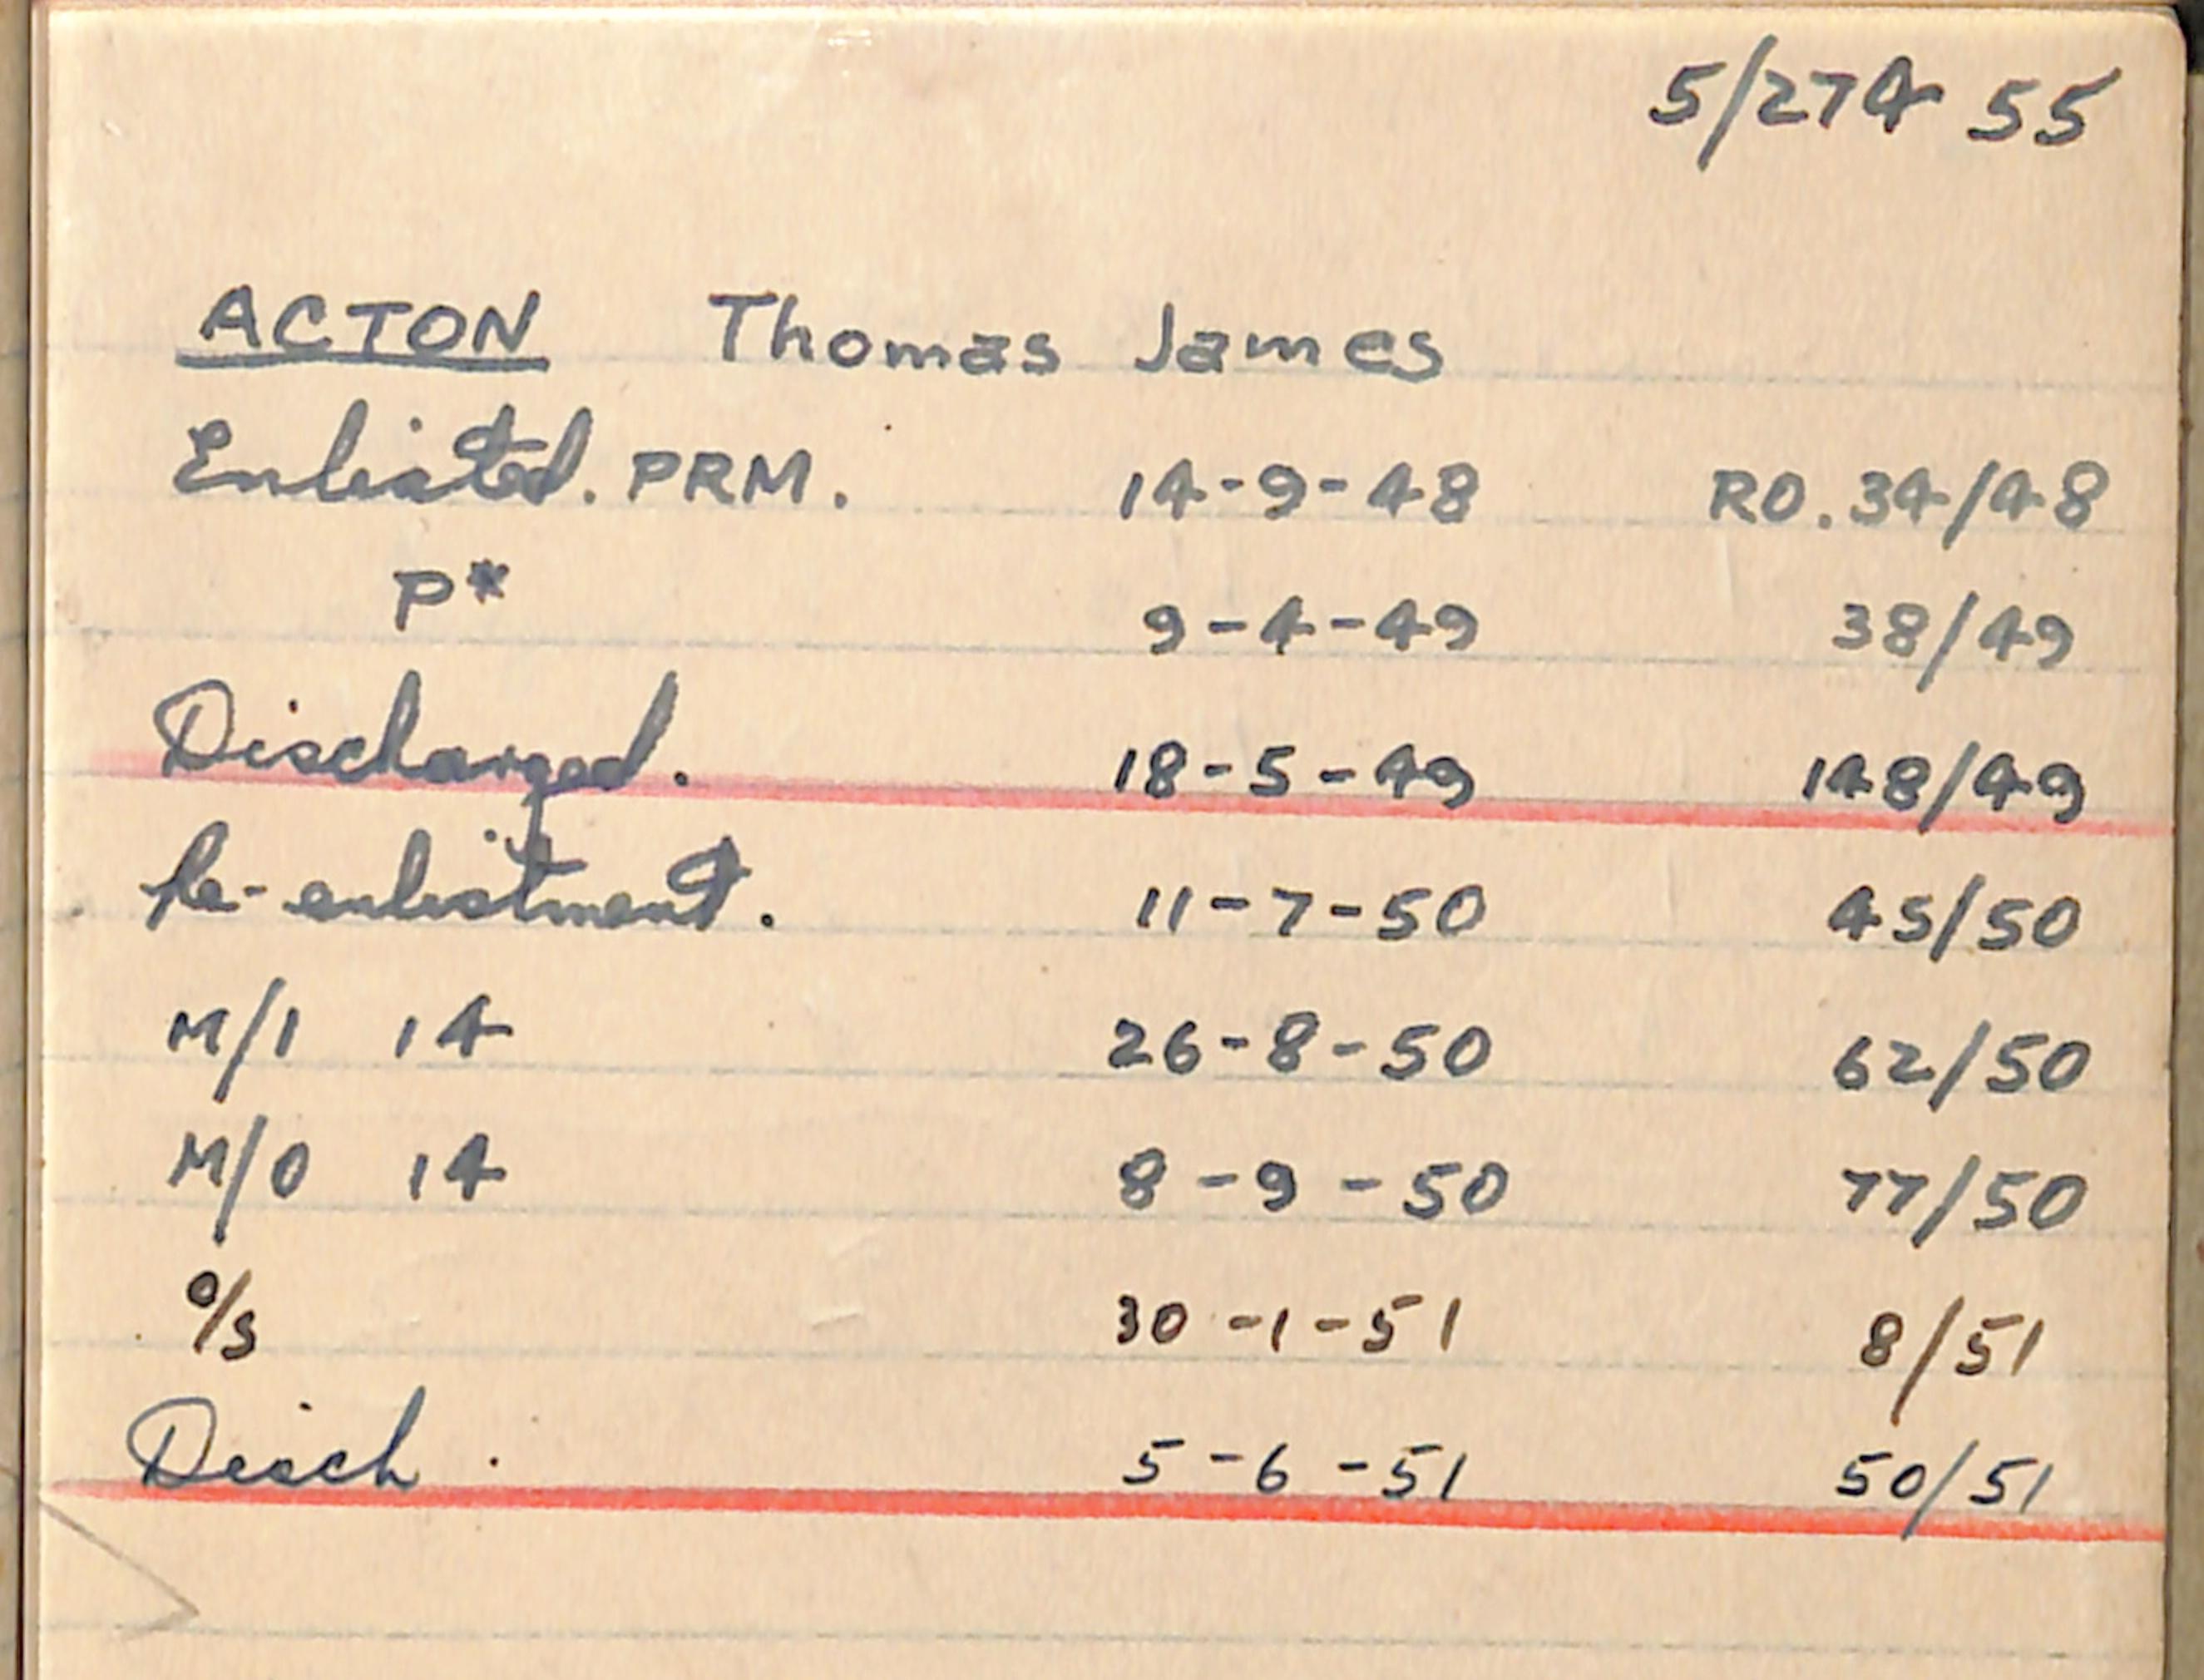 5/274 55
ACTON Thomas James
Enlisted. PRM. 14-9-48 RO. 34/48
P* 9-4-49 38/49
Discharged. 18-5-49 148/49
Re-enlistment. 11-7-50 45/50
M/1 14 26-8-50 62/50
M/0 14 8-9-50 77/50
o/s 30-1-51 8/51
Disch. 5-6-51 50/51